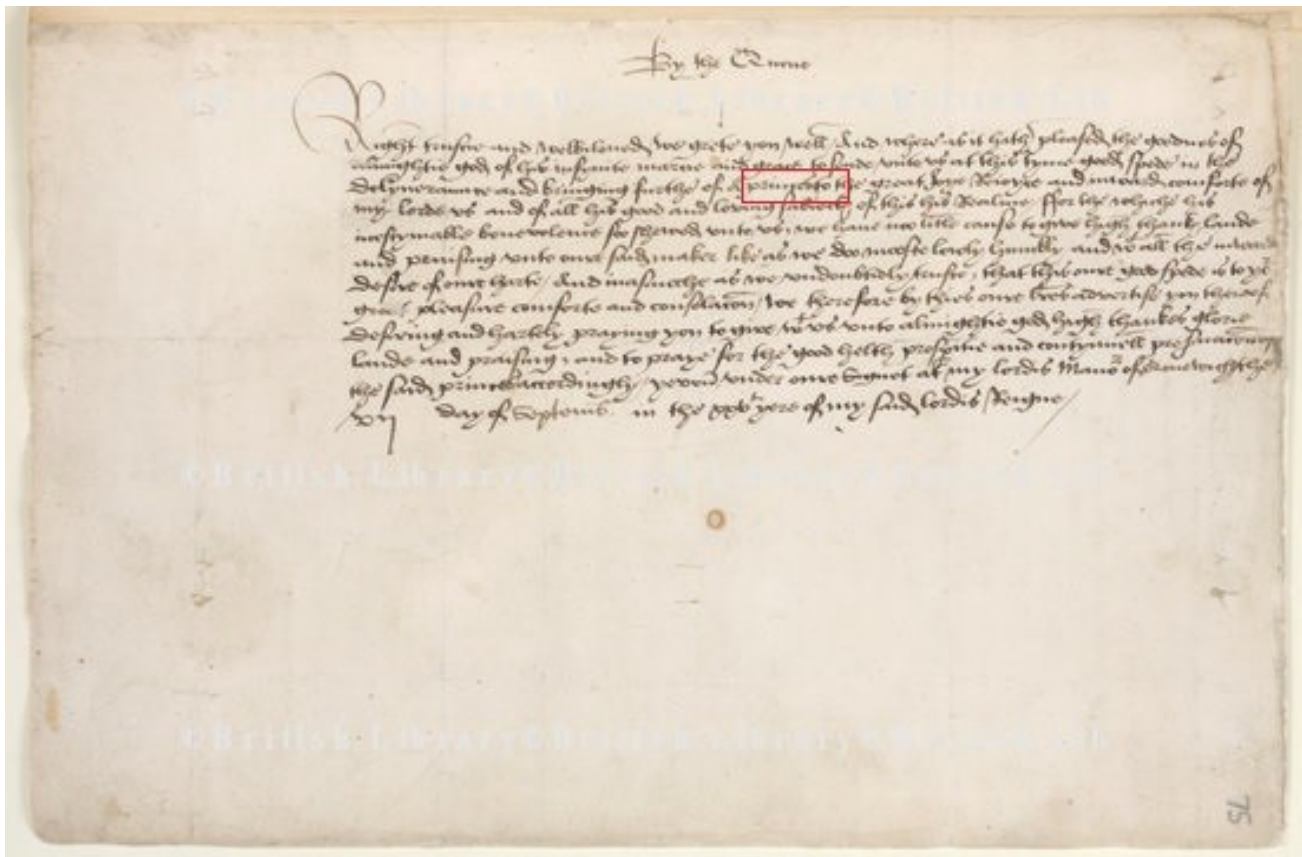 By the Quene
Right trustie and welbiloved we grete you well And where as it hath pleased the goodnes of
almightie god of his infynite marcie and grace to sende unto us at this tyme good spede in the
delyveraunce and bringing furthe of a princes to the great Joye Rejoyce and inward comforte of
my lorde us and of all his good and loving subjectes of this his Realme ffor the whiche his
inestymable benevolence soo shewed unto us, we have noo litle cause to give high thankes laude
and praising unto oure said maker like as we doo mooste lowly humbly and wt all the inward
desire of oure harte / And inasmuche as we undoubtidly truste, that this oure good spede is to yor
great pleasure comforte and consolacon / We therefore by thies oure lres advertise you thereof
desiring and hartely praying you to give wt us unto almightie god high thankes glorie
laude and praising, and to praye for the good helth prosperitie and contynuell preservacon of
the said princes accordingly / yeven under oure Signet at my lordis Manor of Grenewiche the
vii day of Septembr in the xxvth yere of my said lordis Reigne /
75
© British Library © British Library © British Library © British Lib
© British Library © British Library © British Library © British Lib
© British Library © British Library © British Library © British Lib